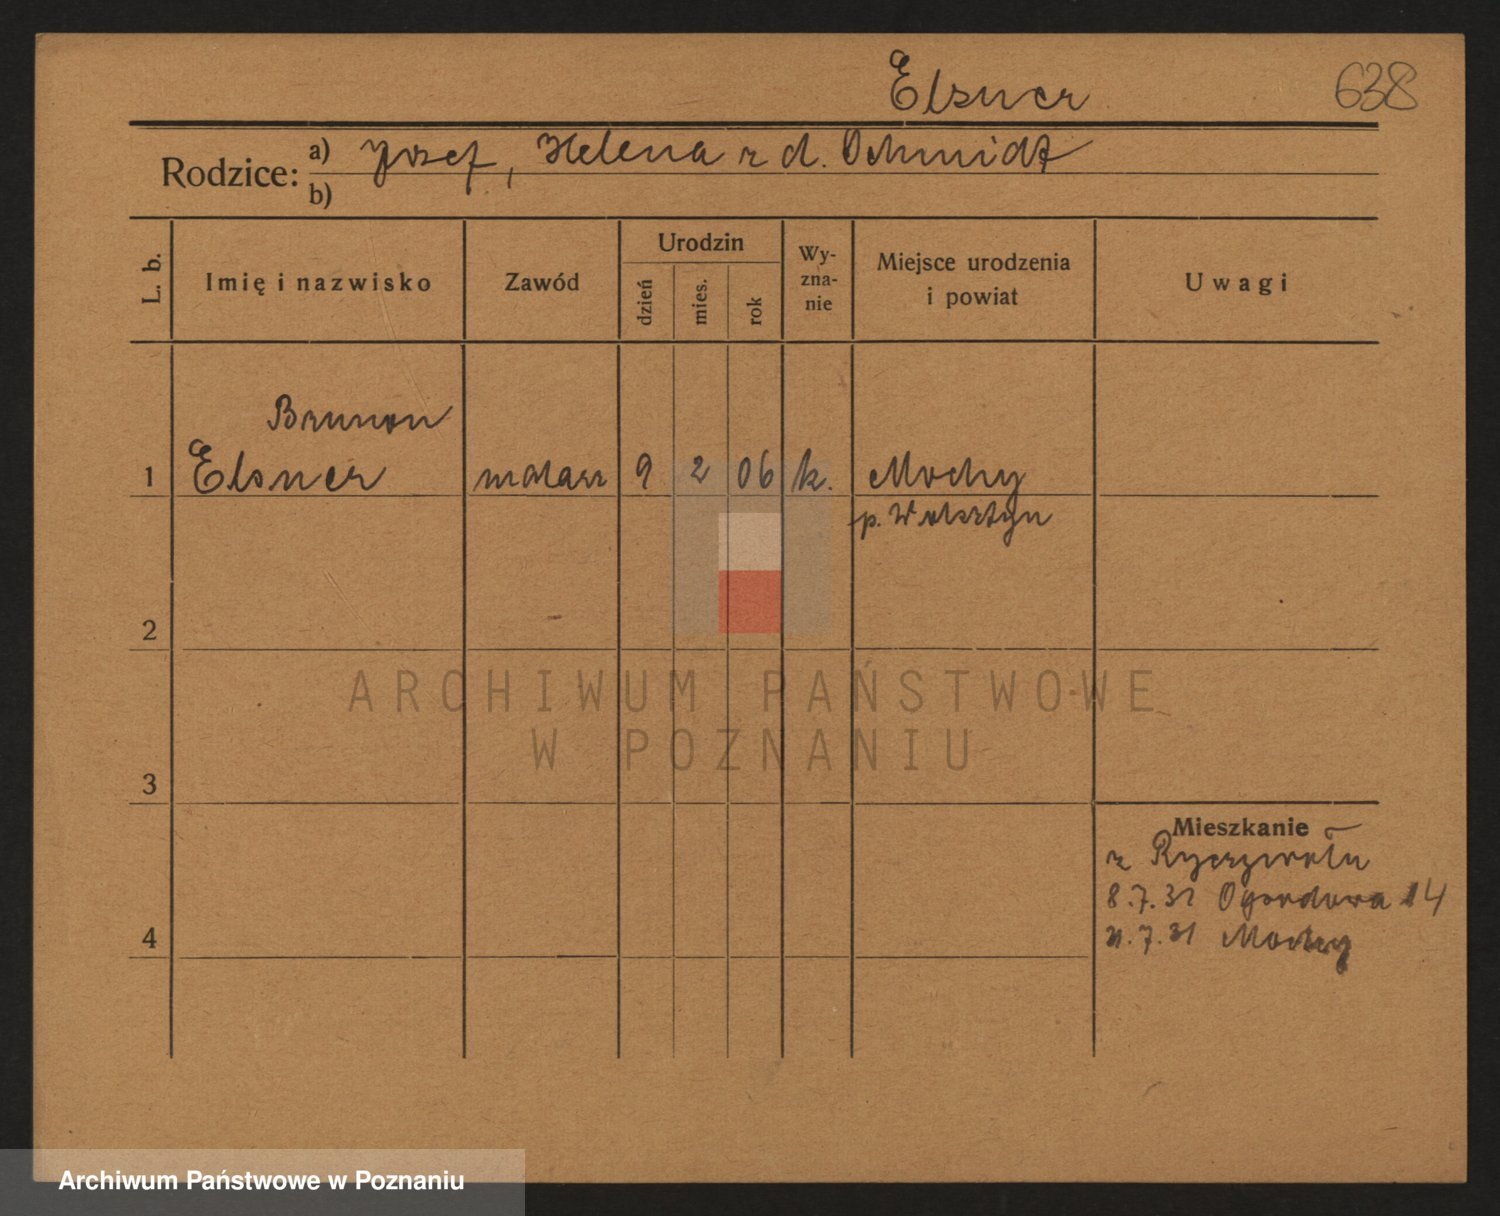 Elsner
638
Rodzice: a) Józef, Helena z d. Schmidt
b)
L. b.
Imię i nazwisko
Zawód
Urodzin
dzień
mies.
rok
Wy-
zna-
nie
Miejsce urodzenia
i powiat
Uwagi
Brunon
1 Elsner malarz 9 2 06 k. Mochy
p. Wolsztyn
2
ARCHIWUM PAŃSTWOWE
W POZNANIU
3
Mieszkanie
z Ryczywołu
8.7.31 Ogrodowa 14
4
21.7.31 Mochy
Archiwum Państwowe w Poznaniu